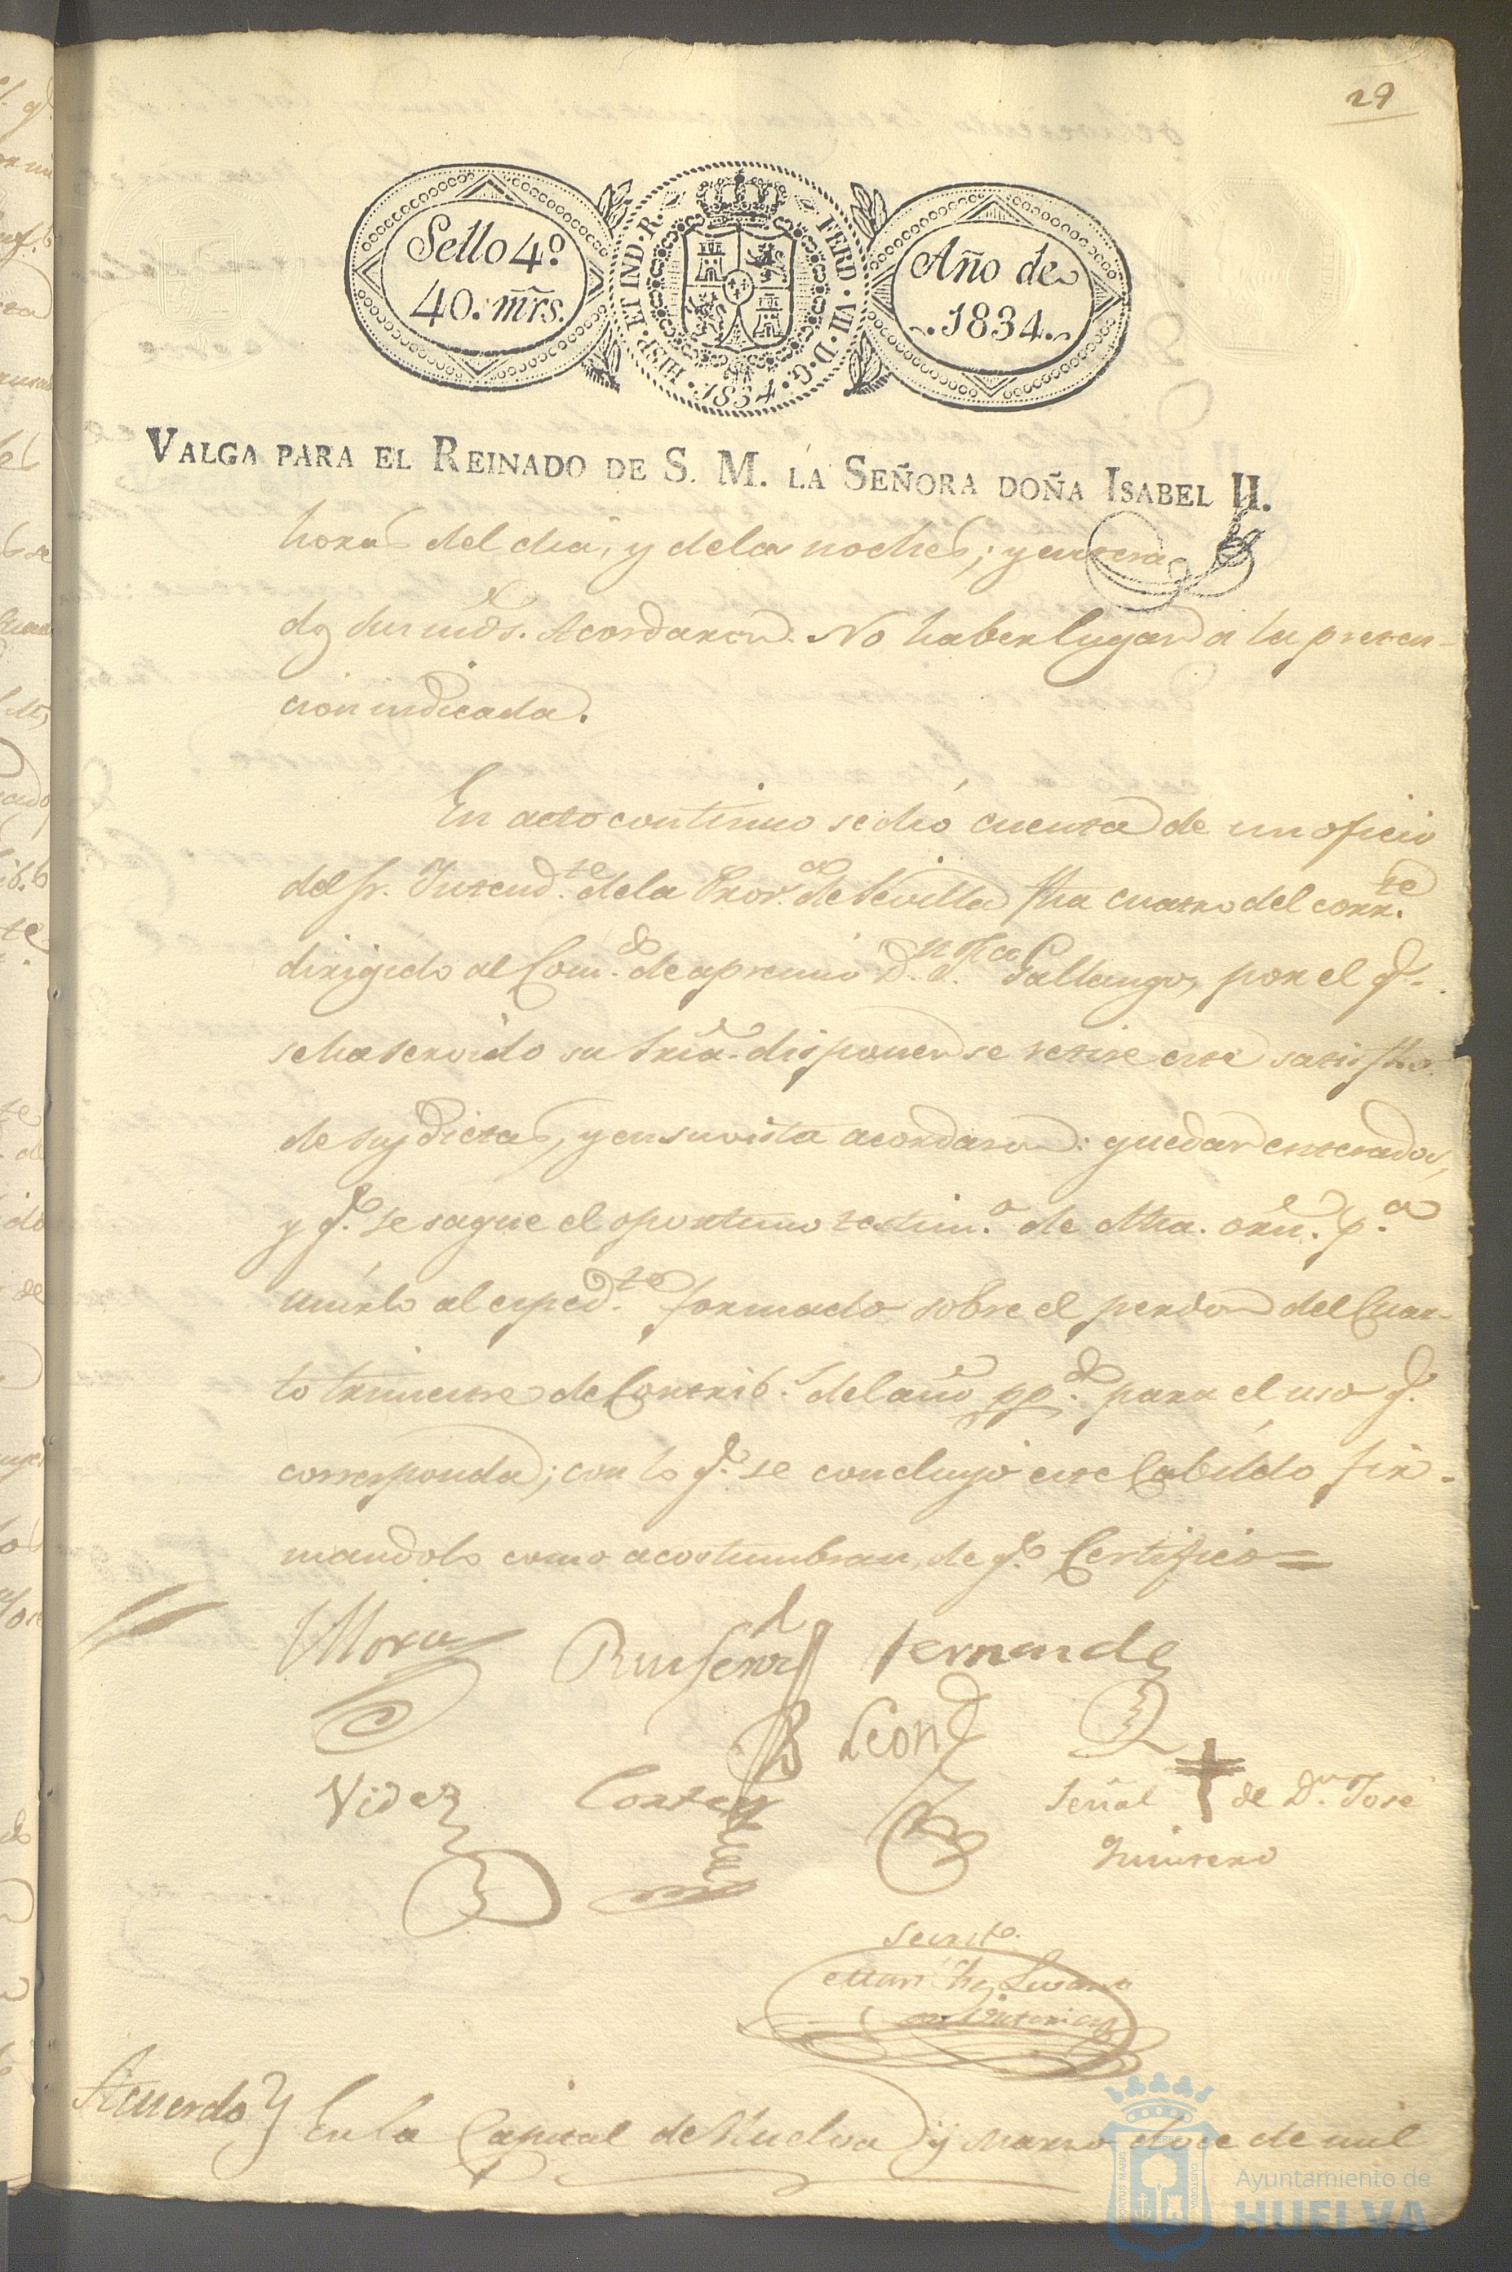 29
Sello 4º.
40. mrs.
HISP. ET IND. R.
FERD. VII. D. G.
1834.
Año de
1834.
VALGA PARA EL REINADO DE S. M. LA SEÑORA DOÑA ISABEL II.
horas del dia, y dela noches; y entera
dos sus mds. Acordaron. No haber lugar a la preten-
cion indicada.
En acto continuo se dió cuenta de un oficio
del Sr. Intend.te dela Prov.a de Sevilla fha cuatro del corr.te
dirigido al Com.do de apremio D.n Gallango, por el q.e
seha servido su Sria. disponer se retire este satisfho.
de sus dietas, y en su vista acordaron: quedar enterados,
y q.e se saque el oportuno testim.o de dha. orn. p.a
unirlo al exped.te formado sobre el perdon del Cuar-
to trimestre de Contrib.s del año pp.do para el uso q.e
corresponda; con lo q.e se concluyó este Cabildo fir-
mandolo como acostumbran, de q.e Certifico=
Mora
Fernandez
Leon
Videz
Cortes
Señal † de D.n José
Quintero
Secret.o
Acuerdo
En la Capital de Huelva y Marzo doce de mil
Ayuntamiento de
HUELVA